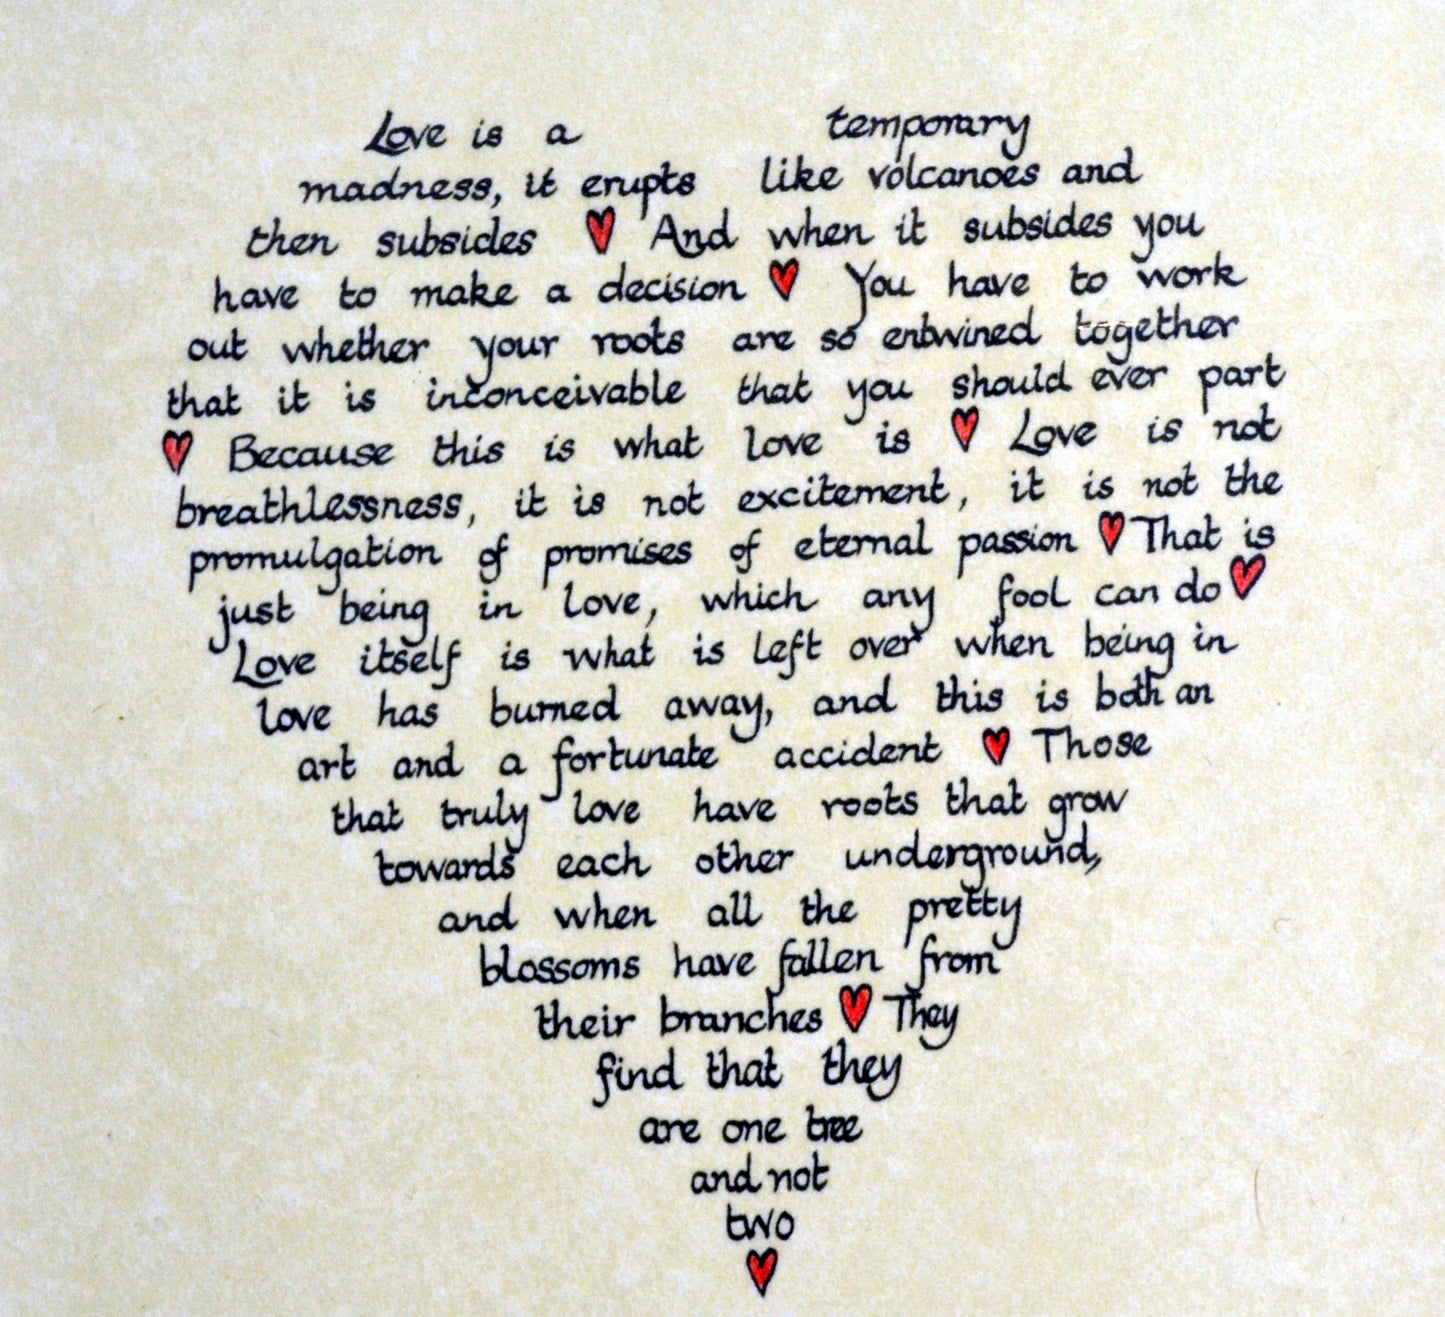 Love is a temporary
madness, it erupts like volcanoes and
then subsides ♥ And when it subsides you
have to make a decision ♥ You have to work
out whether your roots are so entwined together
that it is inconceivable that you should ever part
♥ Because this is what love is ♥ Love is not
breathlessness, it is not excitement, it is not the
promulgation of promises of eternal passion ♥ That is
just being in love, which any fool can do ♥
Love itself is what is left over when being in
love has burned away, and this is both an
art and a fortunate accident ♥ Those
that truly love have roots that grow
towards each other underground,
and when all the pretty
blossoms have fallen from
their branches ♥ They
find that they
are one tree
and not
two
♥